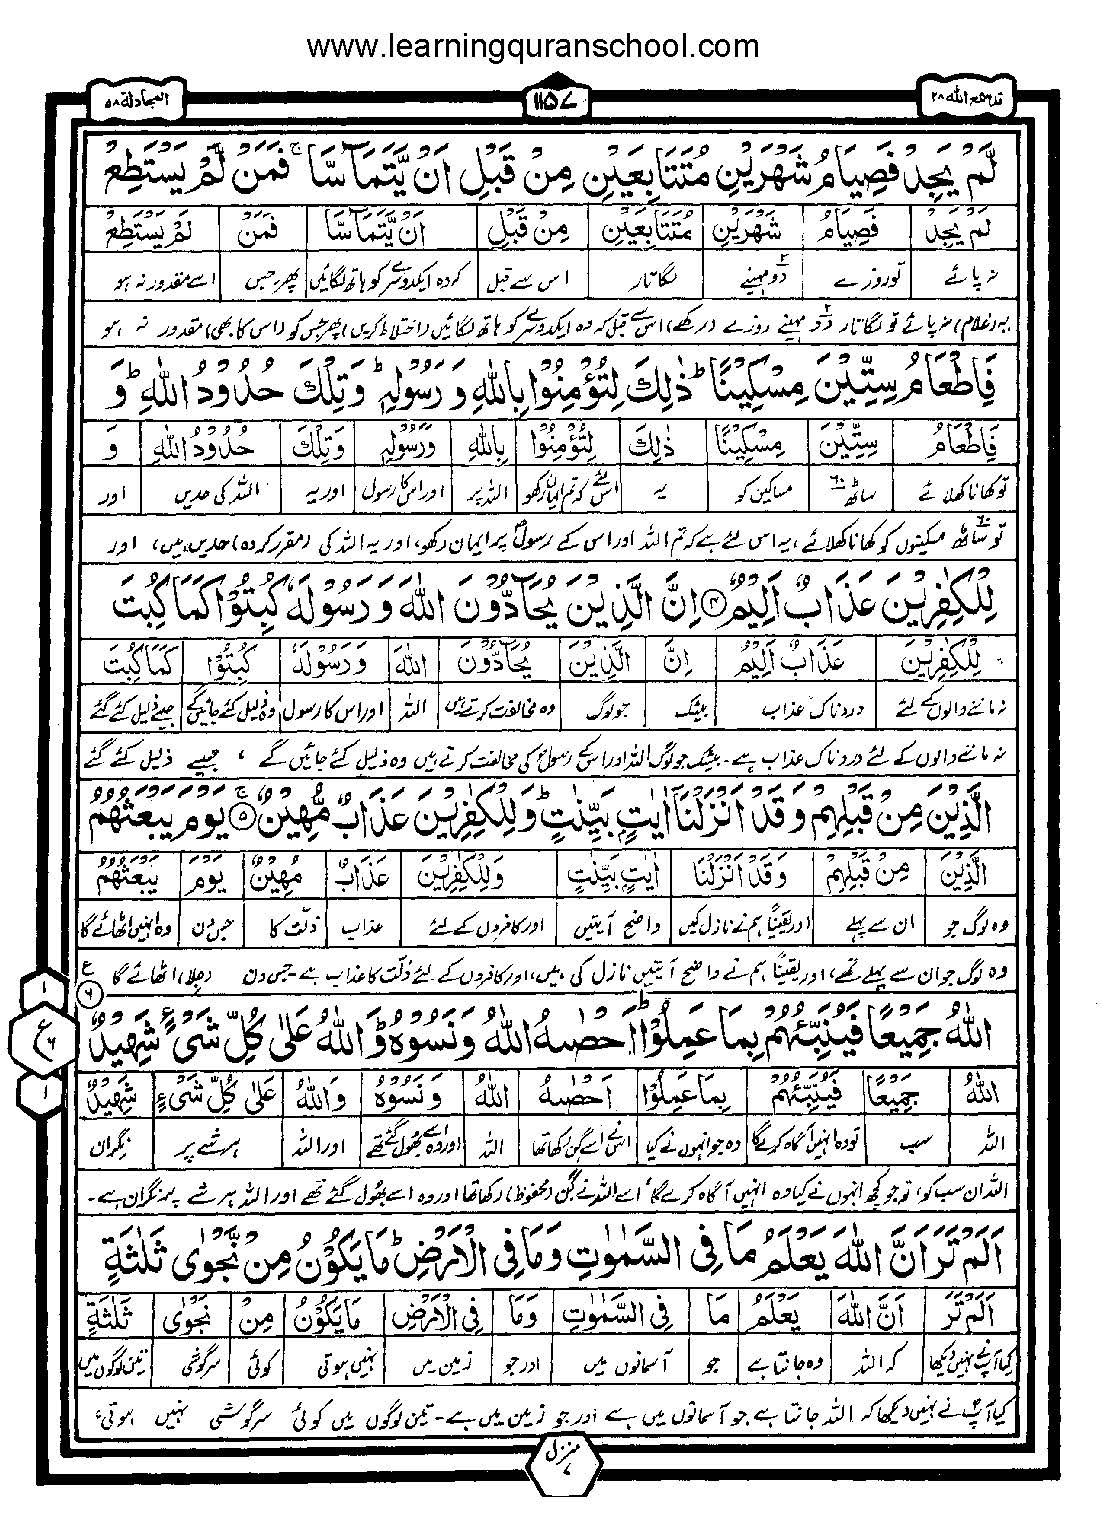 www.learningquranschool.com
قد سمع الله ٢٨
١١٥٧
المجادلة ٥٨
لَّمْ يَجِدْ فَصِيَامُ شَهْرَيْنِ مُتَتَابِعَيْنِ مِنْ قَبْلِ اَنْ يَّتَمَآسَّا ۚ فَمَنْ لَّمْ يَسْتَطِعْ
لَمْ يَجِدْ فَصِيَامُ شَهْرَيْنِ مُتَتَابِعَيْنِ مِنْ قَبْلِ اَنْ يَّتَمَآسَّا فَمَنْ لَمْ يَسْتَطِعْ
نہ پائے تو روزے دو مہینے لگاتار اس سے قبل کہ وہ ایکدوسرے کو ہاتھ لگائیں پھر جس اسے مقدور نہ ہو
یہ (غلام) نہ پائے تو لگاتار دو مہینے روزے (رکھے) اس سے قبل کہ وہ ایکدوسرے کو ہاتھ لگائیں (اختلاط کریں) پھر جس کو (اس کا بھی) مقدور نہ ہو
فَاِطْعَامُ سِتِّيْنَ مِسْكِيْنًا ؕ ذٰلِكَ لِتُؤْمِنُوْا بِاللّٰهِ وَ رَسُوْلِهٖ ؕ وَتِلْكَ حُدُوْدُ اللّٰهِ ؕ وَ
فَاِطْعَامُ سِتِّيْنَ مِسْكِيْنًا ذٰلِكَ لِتُؤْمِنُوْا بِاللّٰهِ وَرَسُوْلِهٖ وَتِلْكَ حُدُوْدُ اللّٰهِ وَ
تو کھانا کھلائے ساٹھ ٦٠ مساکین کو یہ اس لئے کہ تم ایمان رکھو اللہ پر اور اس کا رسول اور یہ اللہ کی حدیں اور
تو ساٹھ ٦٠ مسکینوں کو کھانا کھلائے، یہ اس لئے ہے کہ تم اللہ اور اس کے رسول پر ایمان رکھو، اور یہ اللہ کی (مقرر کردہ) حدیں ہیں، اور
لِلْكٰفِرِيْنَ عَذَابٌ اَلِيْمٌ ۴ اِنَّ الَّذِيْنَ يُحَآدُّوْنَ اللّٰهَ وَ رَسُوْلَهٗ كُبِتُوْا كَمَا كُبِتَ
لِلْكٰفِرِيْنَ عَذَابٌ اَلِيْمٌ اِنَّ الَّذِيْنَ يُحَآدُّوْنَ اللّٰهَ وَرَسُوْلَهٗ كُبِتُوْا كَمَا كُبِتَ
نہ ماننے والوں کے لئے دردناک عذاب بیشک جو لوگ وہ مخالفت کرتے ہیں اللہ اور اس کا رسول وہ ذلیل کئے جائیں گے جیسے ذلیل کئے گئے
نہ ماننے والوں کے لئے دردناک عذاب ہے۔ بیشک جو لوگ اللہ اور اس کے رسول کی مخالفت کرتے ہیں وہ ذلیل کئے جائیں گے ، جیسے ذلیل کئے گئے
الَّذِيْنَ مِنْ قَبْلِهِمْ وَ قَدْ اَنْزَلْنَاۤ اٰيٰتٍ بَيِّنٰتٍ ؕ وَلِلْكٰفِرِيْنَ عَذَابٌ مُّهِيْنٌ ۚ ۵ يَوْمَ يَبْعَثُهُمُ
الَّذِيْنَ مِنْ قَبْلِهِمْ وَقَدْ اَنْزَلْنَا اٰيٰتٍ بَيِّنٰتٍ وَلِلْكٰفِرِيْنَ عَذَابٌ مُهِيْنٌ يَوْمَ يَبْعَثُهُمُ
وہ لوگ جو ان سے پہلے اور یقیناً ہم نے نازل کیں واضح آیتیں اور کافروں کے لئے عذاب ذلت کا جس دن وہ انہیں اٹھائے گا
وہ لوگ جو ان سے پہلے تھے، اور یقیناً ہم نے واضح آیتیں نازل کی ہیں، اور کافروں کے لئے ذلت کا عذاب ہے۔ جس دن (جلا) اٹھائے گا
اللّٰهُ جَمِيْعًا فَيُنَبِّئُهُمْ بِمَا عَمِلُوْا ؕ اَحْصٰىهُ اللّٰهُ وَ نَسُوْهُ ؕ وَاللّٰهُ عَلٰى كُلِّ شَىْءٍ شَهِيْدٌ
ع ٦
١ ع ٦ ١
اللّٰهُ جَمِيْعًا فَيُنَبِّئُهُمْ بِمَا عَمِلُوْا اَحْصٰىهُ اللّٰهُ وَ نَسُوْهُ وَاللّٰهُ عَلٰى كُلِّ شَىْءٍ شَهِيْدٌ
اللہ سب تو وہ انہیں آگاہ کرے گا وہ جو انہوں نے کیا اس نے اسے گن رکھا تھا اللہ اور وہ اسے بھول گئے تھے اور اللہ ہر شے پر نگران
اللہ ان سب کو، تو جو کچھ انہوں نے کیا وہ انہیں آگاہ کرے گا، اسے اللہ نے گن (محفوظ) رکھا تھا اور وہ اسے بھول گئے تھے اور اللہ ہر شے پر نگران ہے۔
اَلَمْ تَرَ اَنَّ اللّٰهَ يَعْلَمُ مَا فِى السَّمٰوٰتِ وَمَا فِى الْاَرْضِ ؕ مَا يَكُوْنُ مِنْ نَّجْوٰى ثَلٰثَةٍ
اَلَمْ تَرَ اَنَّ اللّٰهَ يَعْلَمُ مَا فِى السَّمٰوٰتِ وَمَا فِى الْاَرْضِ مَا يَكُوْنُ مِنْ نَجْوٰى ثَلٰثَةٍ
کیا آپ نے نہیں دیکھا کہ اللہ وہ جانتا ہے جو آسمانوں میں اور جو زمین میں نہیں ہوتی کوئی سرگوشی تین لوگوں میں
کیا آپ نے نہیں دیکھا کہ اللہ جانتا ہے جو آسمانوں میں ہے اور جو زمین میں ہے۔ تین لوگوں میں کوئی سرگوشی نہیں ہوتی
منزل ٧